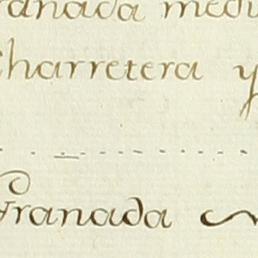 Granada medi
Charretera y
Granada